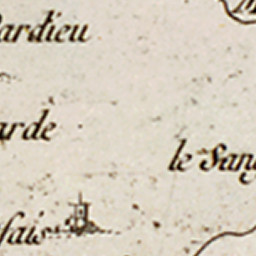 ardieu
arde
le Sang
fais